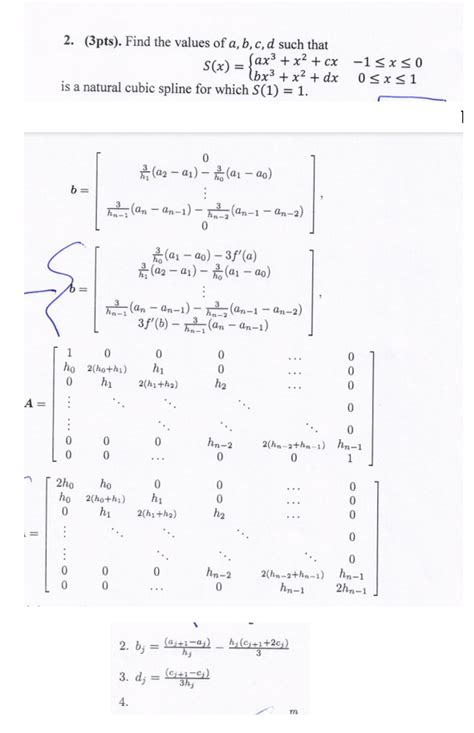 2. (3pts). Find the values of a, b, c, d such that
S(x) = { ax³ + x² + cx −1 ≤ x ≤ 0
bx³ + x² + dx 0 ≤ x ≤ 1
is a natural cubic spline for which S(1) = 1.
b = [ 0
3/h₁ (a₂ − a₁) − 3/h₀ (a₁ − a₀)
⋮
3/hₙ₋₁ (aₙ − aₙ₋₁) − 3/hₙ₋₂ (aₙ₋₁ − aₙ₋₂)
0 ],
b = [ 3/h₀ (a₁ − a₀) − 3f′(a)
3/h₁ (a₂ − a₁) − 3/h₀ (a₁ − a₀)
⋮
3/hₙ₋₁ (aₙ − aₙ₋₁) − 3/hₙ₋₂ (aₙ₋₁ − aₙ₋₂)
3f′(b) − 3/hₙ₋₁ (aₙ − aₙ₋₁) ],
A = [ 1 0 0 0 ⋯ 0
h₀ 2(h₀+h₁) h₁ 0 ⋯ 0
0 h₁ 2(h₁+h₂) h₂ ⋯ 0
⋮ ⋱ ⋱ ⋱ 0
⋮ ⋱ ⋱ 0
0 0 0 hₙ₋₂ 2(hₙ₋₂+hₙ₋₁) hₙ₋₁
0 0 ⋯ 0 0 1 ]
= [ 2h₀ h₀ 0 0 ⋯ 0
h₀ 2(h₀+h₁) h₁ 0 ⋯ 0
0 h₁ 2(h₁+h₂) h₂ ⋯ 0
⋮ ⋱ ⋱ ⋱ 0
⋮ ⋱ ⋱ 0
0 0 0 hₙ₋₂ 2(hₙ₋₂+hₙ₋₁) hₙ₋₁
0 0 ⋯ 0 hₙ₋₁ 2hₙ₋₁ ]
2. bⱼ = (aⱼ₊₁−aⱼ)/hⱼ − hⱼ(cⱼ₊₁+2cⱼ)/3
3. dⱼ = (cⱼ₊₁−cⱼ)/3hⱼ
4.
m